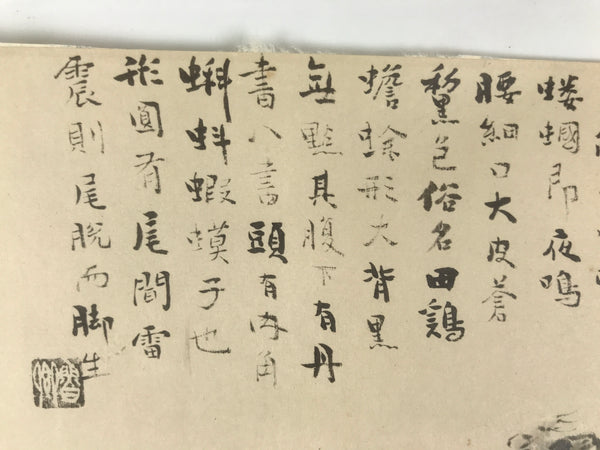 螻蟈即夜鳴
腰細口大皮蒼
黧色俗名田鷄
蟾蜍形大背黑
無點其腹下有丹
書八書頭有肉角
蝌蚪蝦蟆子也
形圓有尾聞雷
震則尾脫而脚生